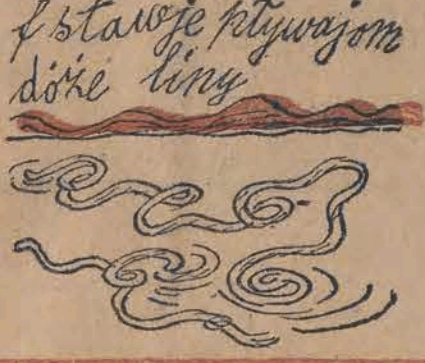 f stawje pływajom
dóże liny